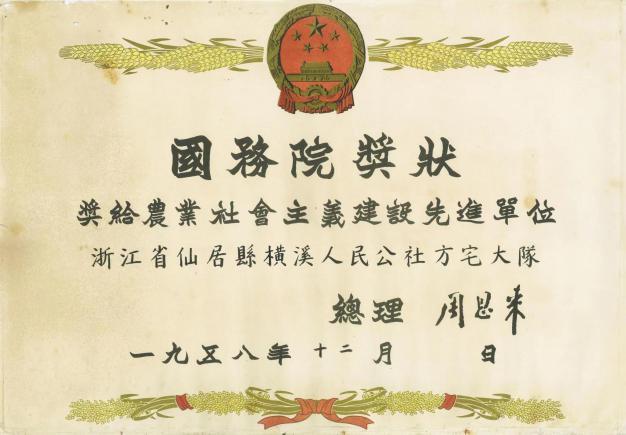 國務院獎狀
獎給農業社會主義建設先進單位
浙江省仙居縣橫溪人民公社方宅大隊
總理 周恩来
一九五八年 十二月 日